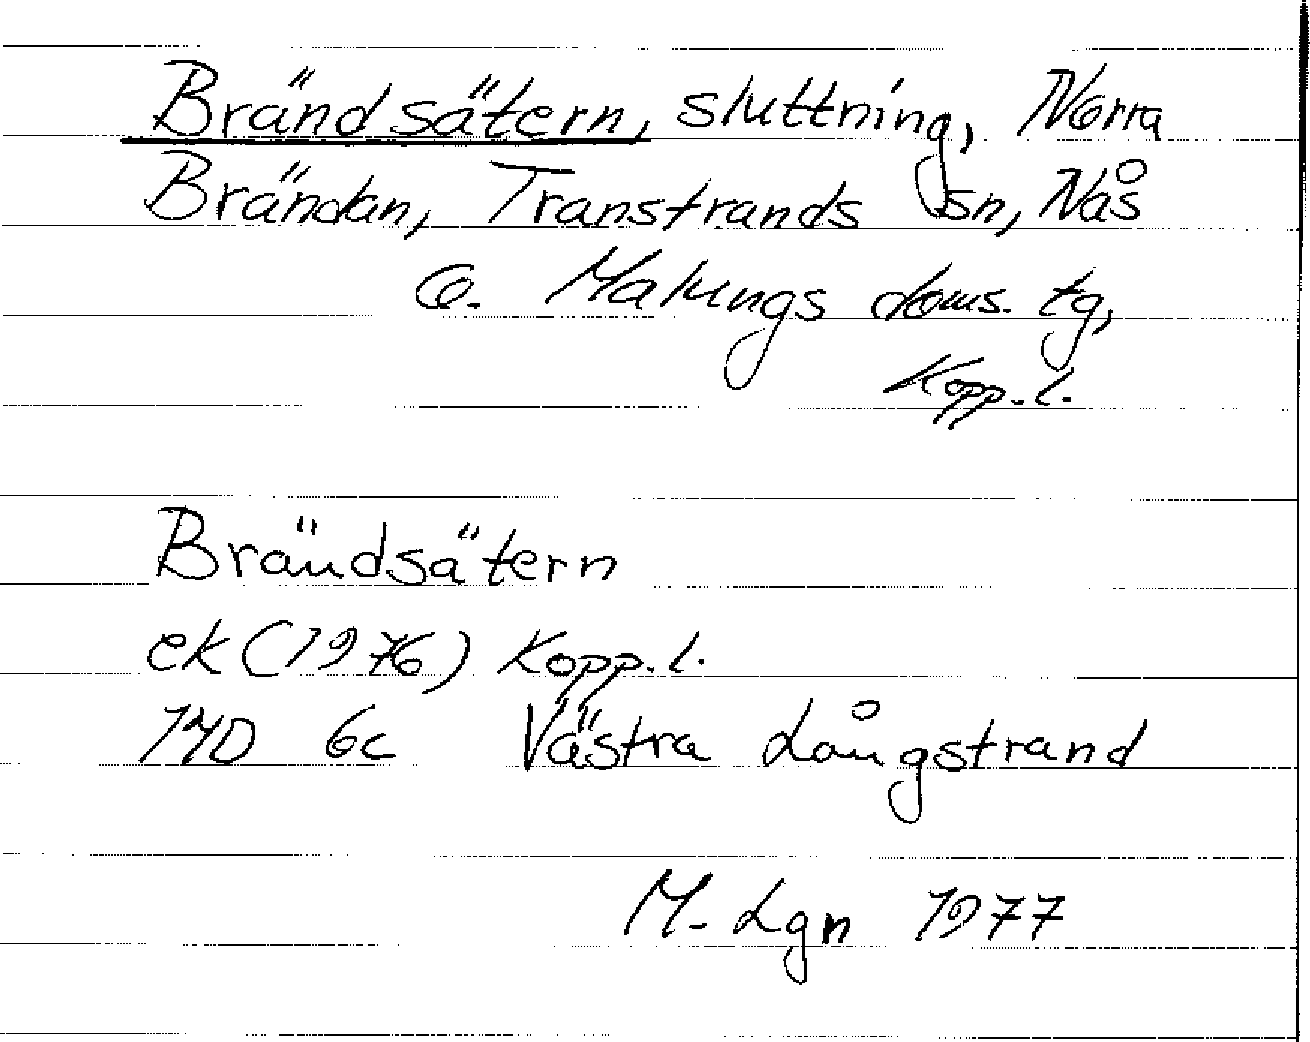 Brändsätern, sluttning, Norra
Brändan, Transtrands sn, Nås
o. Malungs doms. tg,
Kopp. l.
Brändsätern
ek (1976) Kopp. l.
14D 6c Västra Långstrand
M. Lgn 1977